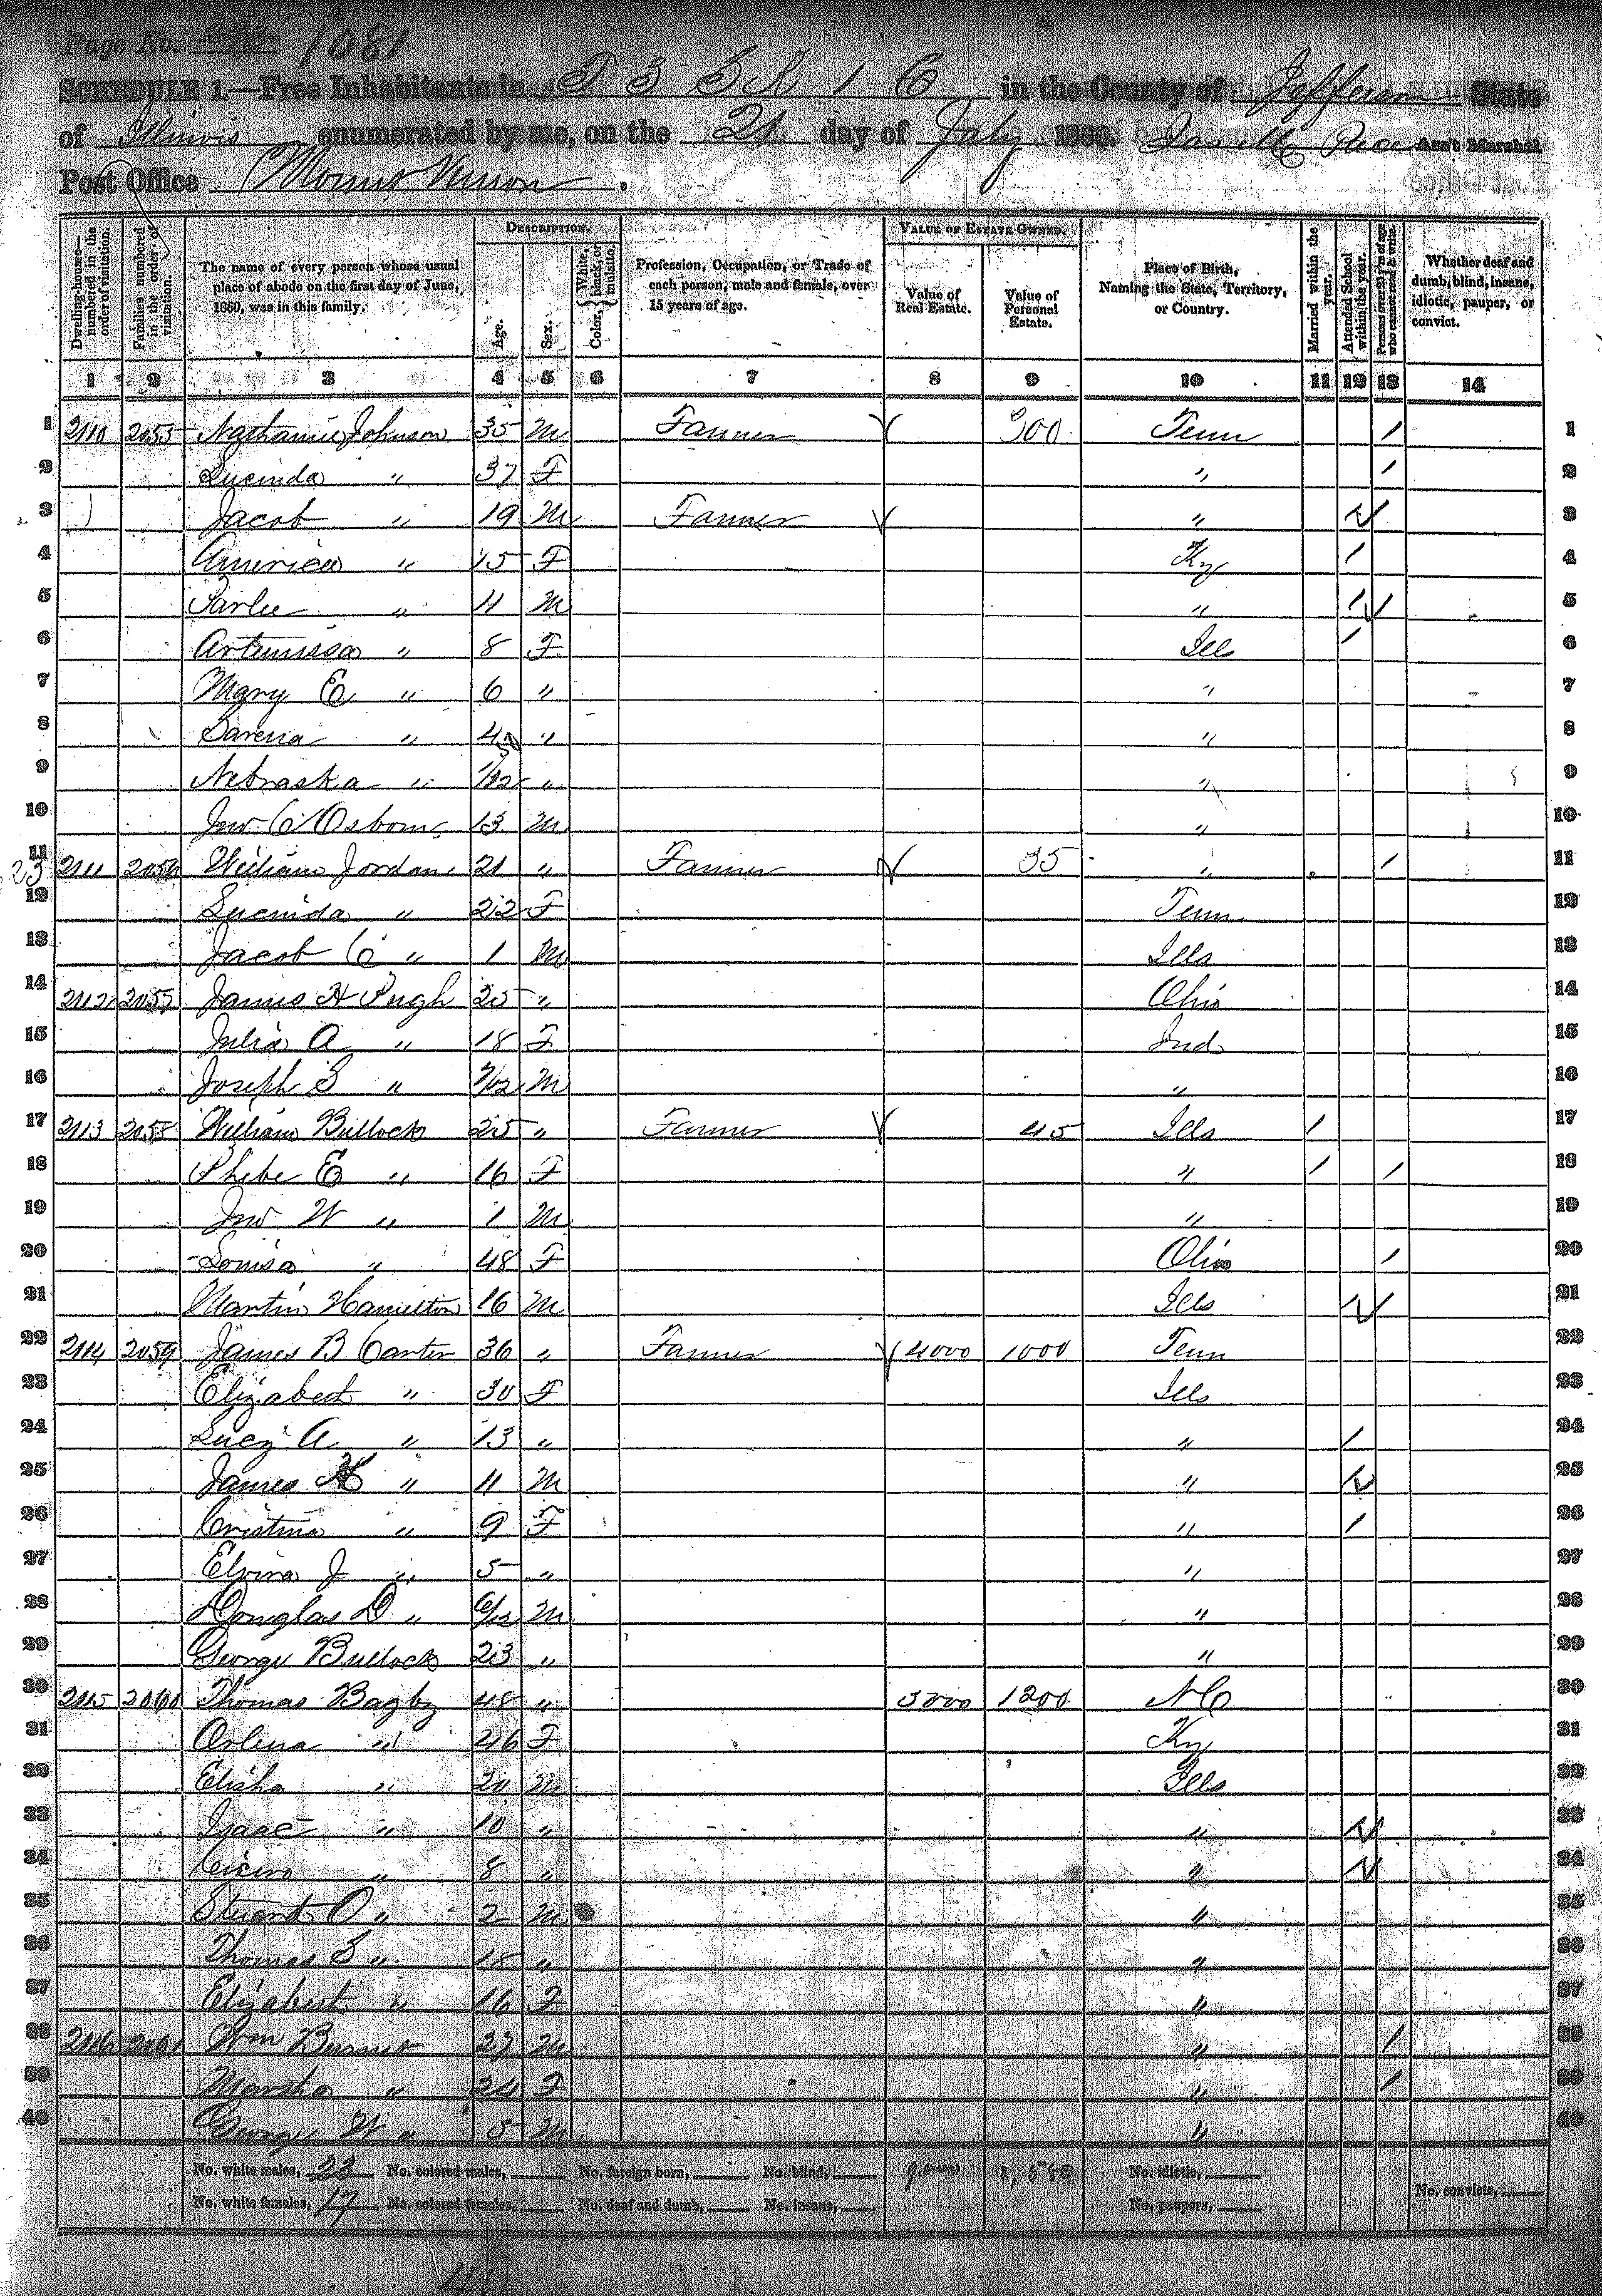 Page No. 1081
SCHEDULE 1.—Free Inhabitants in T 3 S R 1 E in the County of Jefferson State
of Illinois enumerated by me, on the 21 day of July 1860. Ass't Marshal
Post Office Mount Vernon.
DESCRIPTION. VALUE OF ESTATE OWNED.
Dwelling-house—numbered in the order of visitation. Families numbered in the order of visitation. The name of every person whose usual place of abode on the first day of June, 1860, was in this family. Age. Sex. Color, White, black, or mulatto. Profession, Occupation, or Trade of each person, male and female, over 15 years of age. Value of Real Estate. Value of Personal Estate. Place of Birth, Naming the State, Territory, or Country. Married within the year. Attended School within the year. Persons over 20 y'rs of age who cannot read & write. Whether deaf and dumb, blind, insane, idiotic, pauper, or convict.
1 2 3 4 5 6 7 8 9 10 11 12 13 14
1 2110 2055 Nathaniel Johnson 35 M Farmer 300 Tenn / 1
2 Lucinda " 37 F " / 2
3 Jacob " 19 M Farmer " / 3
4 America " 15 F Ky / 4
5 Parlee " 11 M " / 5
6 Artimissa " 8 F Ills / 6
7 Mary E " 6 " " 7
8 Sarena " 4 " " 8
9 Nebraska " /12 " " 9
10 Jno C Osborn 13 M " 10
11 23 2111 2056 William Jordan 21 " Farmer 35 " / 11
12 Lucinda " 22 F Tenn 12
13 Jacob C " 1 M Ills 13
14 2112 2057 James H Pugh 25 " Ohio 14
15 Julia A " 18 F Ind 15
16 Joseph S " 7/12 M " 16
17 2113 2058 William Bullock 25 " Farmer 45 Ills / 17
18 Phebe E " 16 F " / / 18
19 Jno W " 1 M " 19
20 Louisa " 48 F Ohio / 20
21 Martin Hamilton 16 M Ills / 21
22 2114 2059 James B Carter 36 " Farmer 4000 1000 Tenn 22
23 Elizabeth " 30 F Ills 23
24 Lucy A " 13 " " / 24
25 James H " 11 M " / 25
26 Cristina " 9 F " / 26
27 Elvina J " 5 " " 27
28 Douglas D " 6/12 M " 28
29 George Bullock 23 " " 29
30 2115 2060 Thomas Bagby 48 " 5000 1200 N C 30
31 Orlena " 46 F Ky 31
32 Elisha " 20 M Ills 32
33 Isaac " 10 " " / 33
34 Cicero " 8 " " / 34
35 Stuart O " 2 M " 35
36 Thomas S " 18 " " 36
37 Elizabeth " 16 F " 37
38 2116 2061 Wm 27 M " / 38
39 Martha " 24 F " / 39
40 George W " 5 M " 40
No. white males, 23 No. colored males, No. foreign born, No. blind, 9000 2,580 No. idiotic,
No. white females, 17 No. colored females, No. deaf and dumb, No. insane, No. paupers, No. convicts,